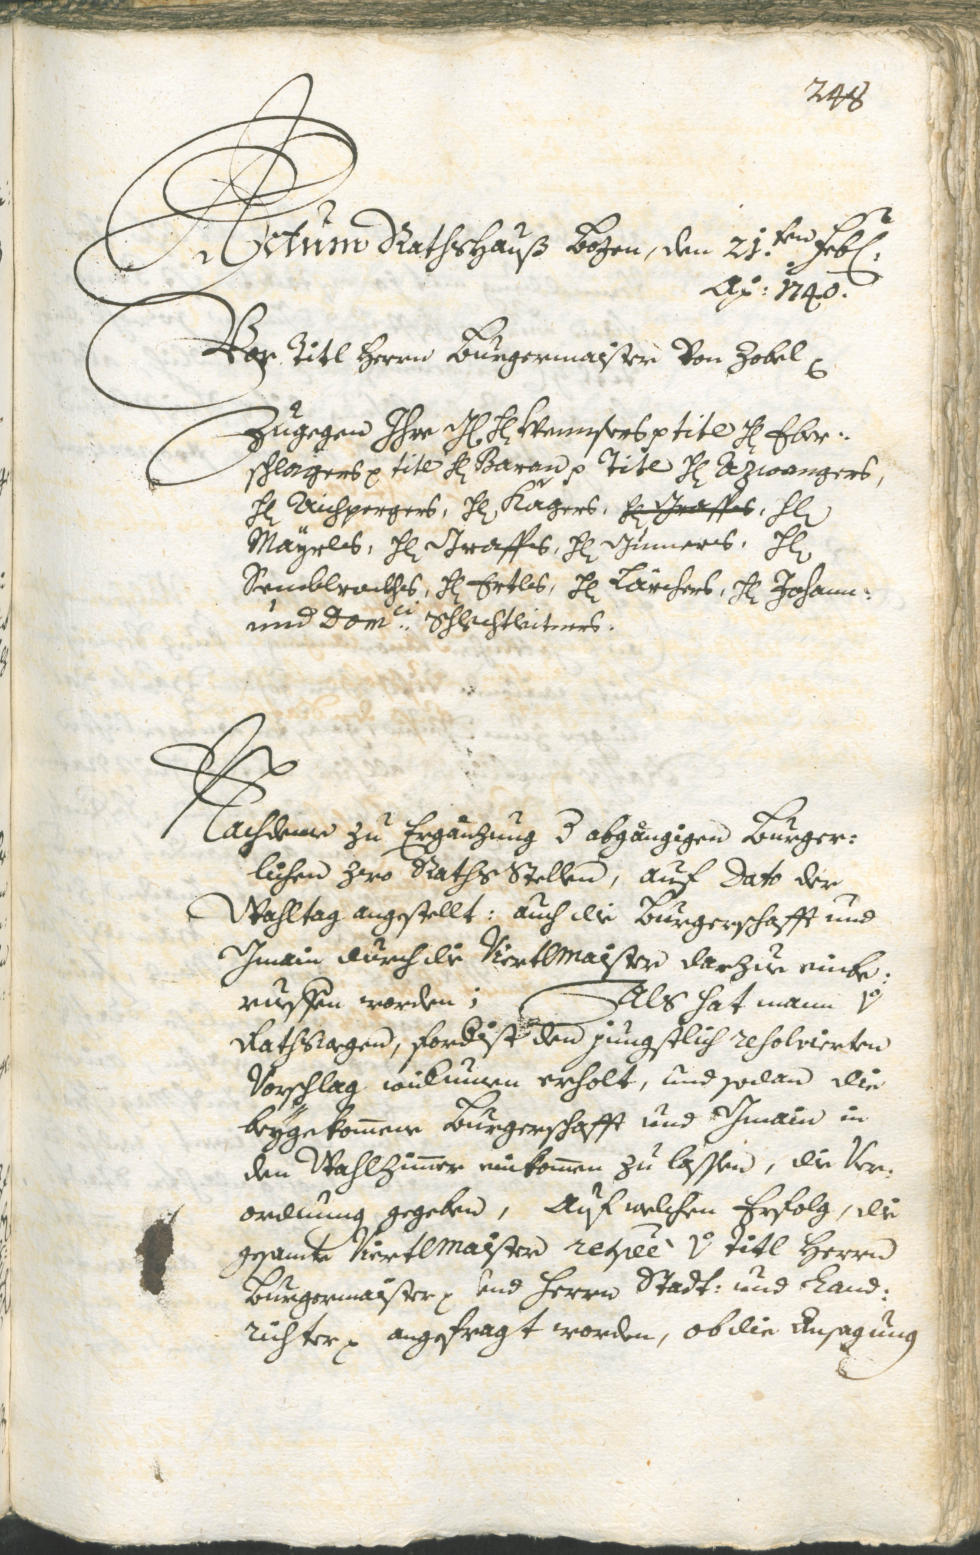 248
Actum Rathshauß Bozen, den 21.ten Feb:
Ao: 1740.
Vor Titl Herrn Burgermaister von Zobel
Zugegen Ihre H H Wensers p title H Eber:
schlagers p title H Baran p Title H Azwangers,
H Aichpergers, H Kägers, H Graffs, H
Mayrls, H Graffs, H H
H Ertls, H Lärchers, H Johann:
und Domci: Schlechtleitners.
Nachdeme zu Ergänzung 3 abgängigen Burger:
lichen Raths Stellen, auf Dato der
Wahltag angestellt: auch die Burgerschafft und
Gmain durch die Viertlmaister darzue einbe:
rueffen worden; Als hat mann
Rathswegen, den jungstlich resolvierten
Vorschlag widerumen erholt, und sodan die
beygekommene Burgerschafft und Gmain in
den Wahlzimmer einkommen zu lassen, die Ver:
ordnung gegeben, Auf welchen Erfolg, die
gesamte Viertlmaister Titl Herrn
Burgermaister p und Herrn Stadt: und Land:
richter p angefragt worden, ob die Ansagung